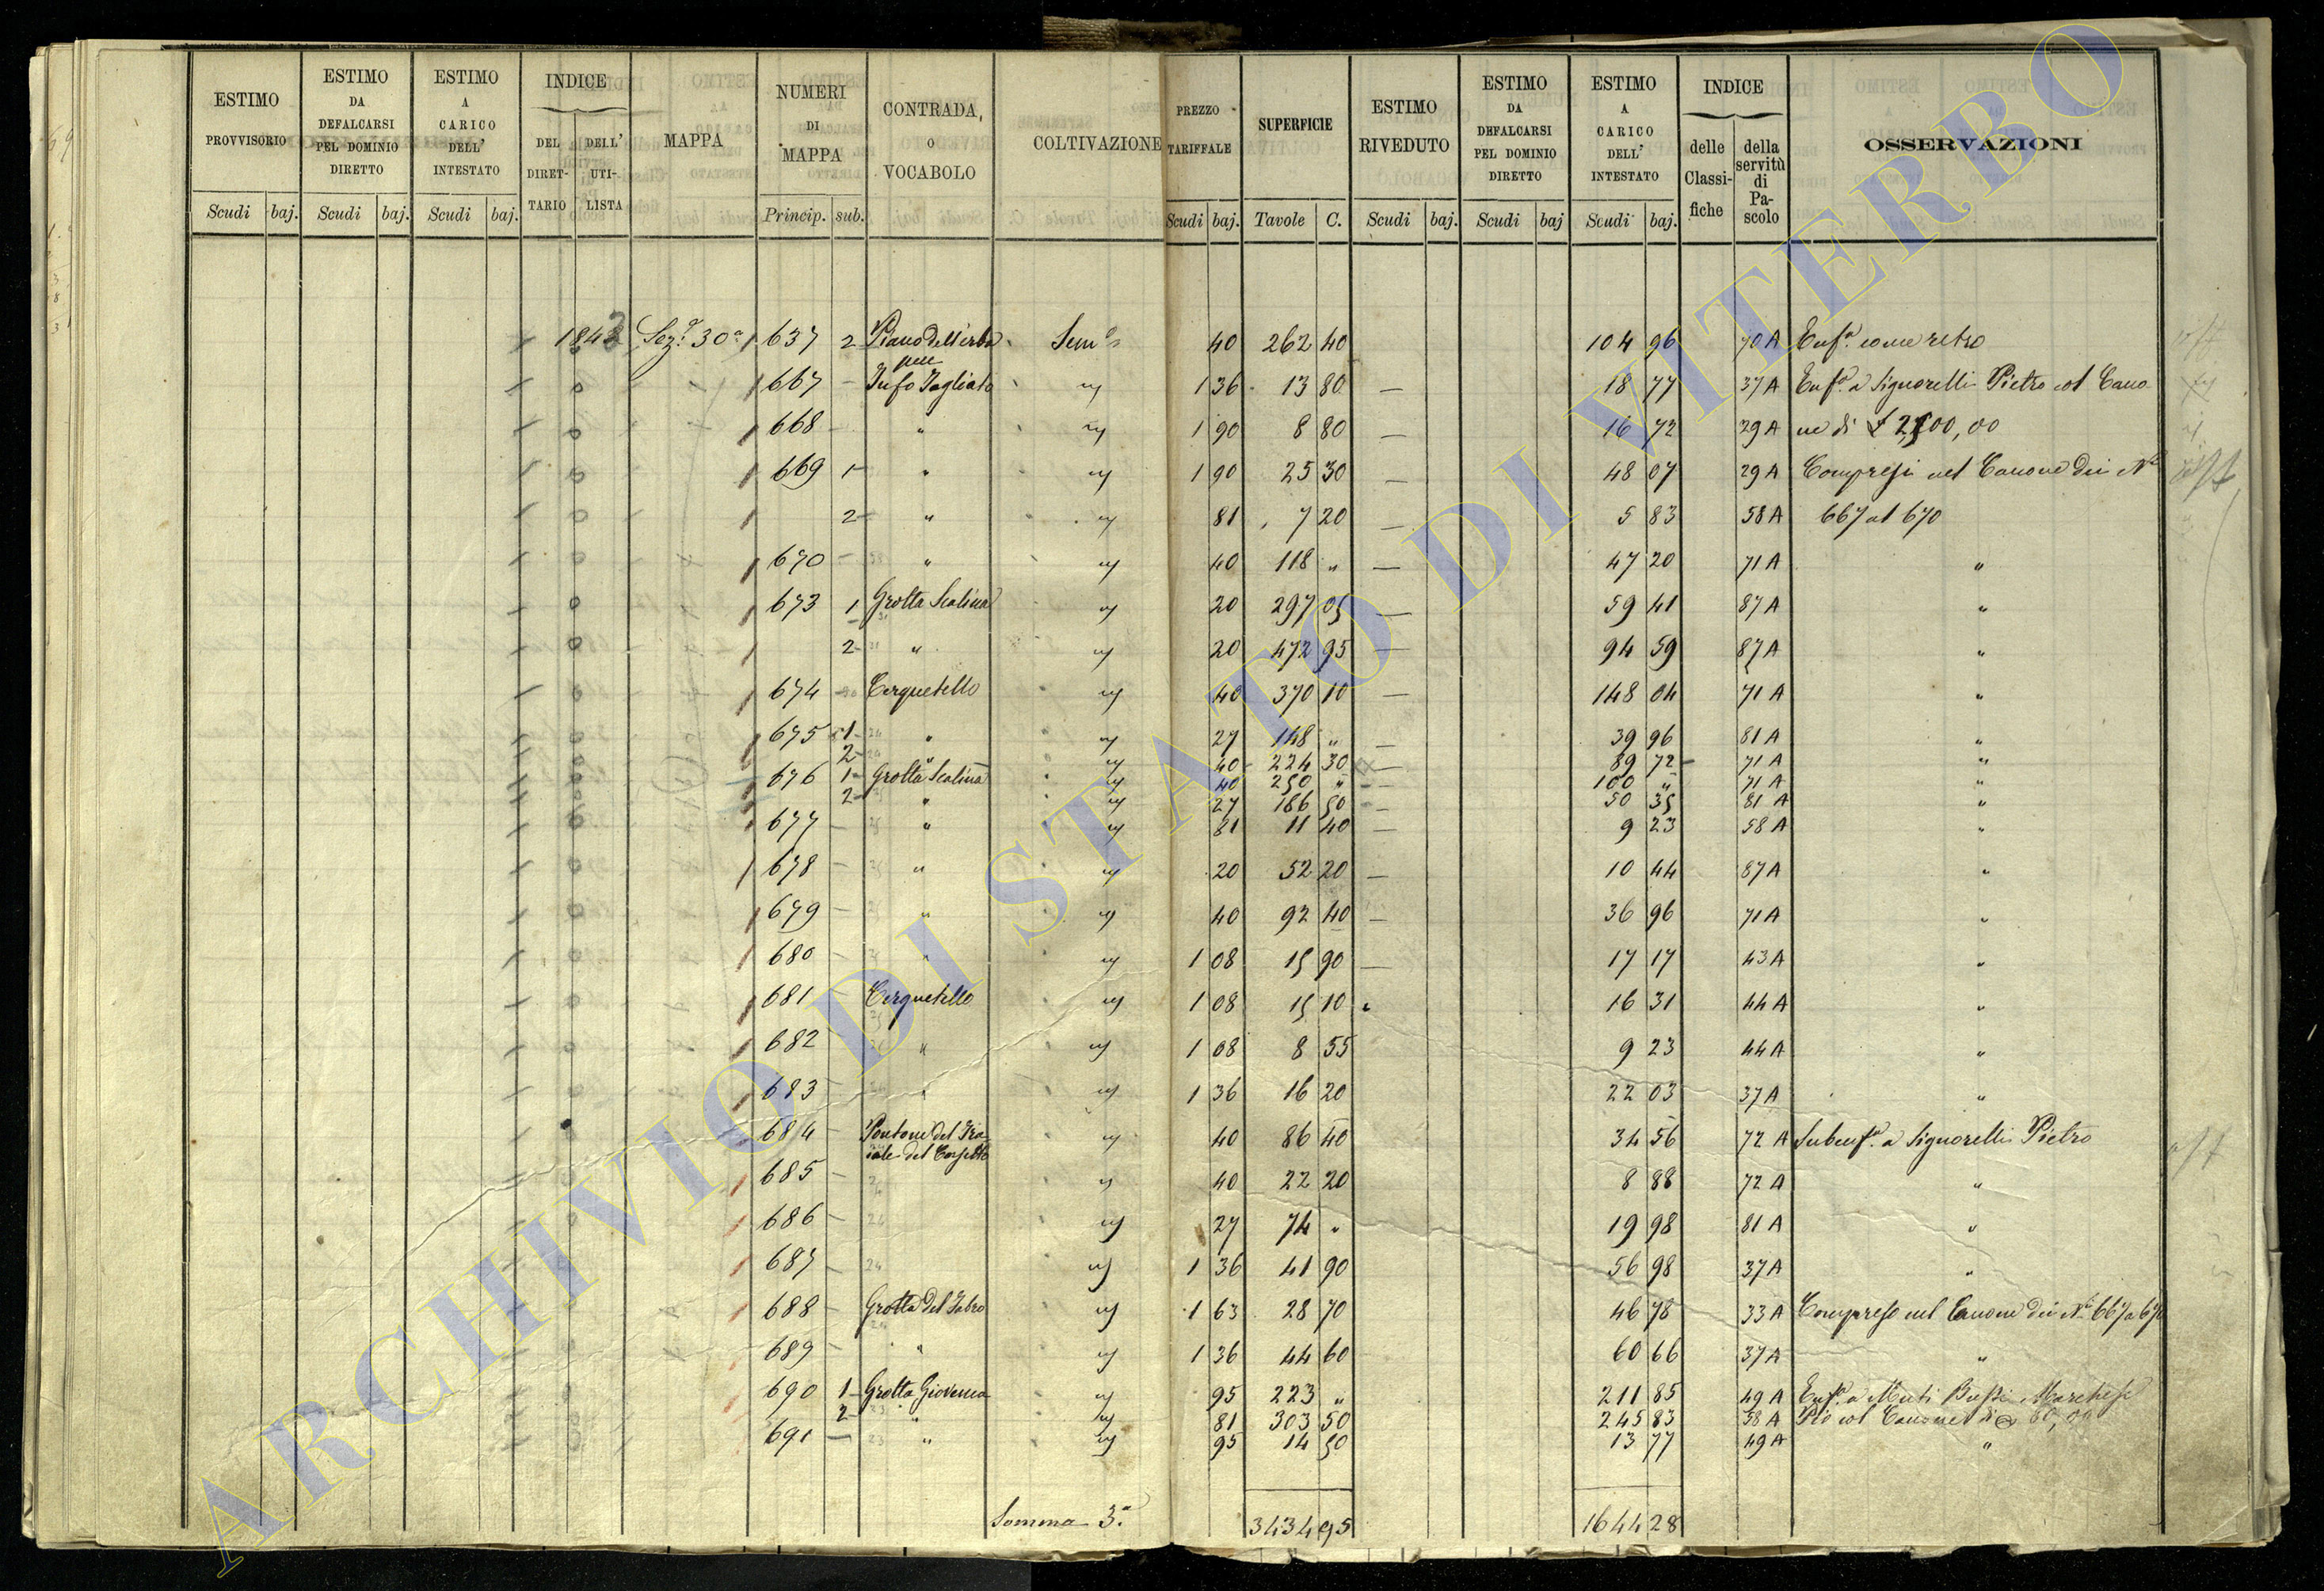 ESTIMO PROVVISORIO | ESTIMO DA DEFALCARSI PEL DOMINIO DIRETTO | ESTIMO A CARICO DELL' INTESTATO | INDICE | MAPPA | NUMERI DI MAPPA | CONTRADA, o VOCABOLO | COLTIVAZIONE | PREZZO TARIFFALE | SUPERFICIE | ESTIMO RIVEDUTO | ESTIMO DA DEFALCARSI PEL DOMINIO DIRETTO | ESTIMO A CARICO DELL' INTESTATO | INDICE | OSSERVAZIONI
DEL DIRETTARIO | DELL' UTILISTA | delle Classifiche | della servitù di Pascolo
Scudi baj. | Scudi baj. | Scudi baj. | Princip. sub. | Scudi baj. | Tavole C. | Scudi baj. | Scudi baj | Scudi baj.
1843 Sez.e 30a 637 2 Piano dell'erba Sem.o 40 262 40 104 96 70 A Enf.a come retro
667 Tufo Tagliato 1 36 13 80 18 77 37 A Enf.a a Signorelli Pietro col Cano
668 " 1 90 8 80 16 72 29 A ne di £ 2500,00
669 1 " 1 90 25 30 48 07 29 A Compresi nel Canone dei N.i
2 " 81 7 20 5 83 58 A 667 al 670
670 " 40 118 " 47 20 71 A "
673 1 Grotta Scalina 20 297 05 59 41 87 A "
2 " 20 472 95 94 59 87 A "
674 Cerquetello 40 370 10 148 04 71 A "
675 1 " 27 148 " 39 96 81 A "
2 " 40 224 30 89 72 71 A "
676 1 Grotta Scalina 40 250 " 100 " 71 A "
2 " 27 186 50 50 35 81 A "
677 " 81 11 40 9 23 58 A "
678 " 20 52 20 10 44 87 A "
679 " 40 92 40 36 96 71 A "
680 " 1 08 15 90 17 17 43 A "
681 Cerquetello 1 08 15 10 16 31 44 A "
682 " 1 08 8 55 9 23 44 A "
683 " 1 36 16 20 22 03 37 A "
684 Pontone del 40 86 40 34 56 72 A Subenf.a a Signorelli Pietro
685 40 22 20 8 88 72 A "
686 27 74 " 19 98 81 A "
687 1 36 41 90 56 98 37 A "
688 Grotta del 1 63 28 70 46 78 33 A Compreso nel Canone dei N.i 667 a 670
689 " 1 36 44 60 60 66 37 A "
690 1 Grotta Giovenca 95 223 " 211 85 49 A Enf.a a Muti Bussi Marchese
2 " 81 303 50 245 83 58 A Pio col Canone di 60,00
691 " 95 14 50 13 77 49 A "
Somma 3.a 3434 95 1644 28
ARCHIVIO DI STATO DI VITERBO